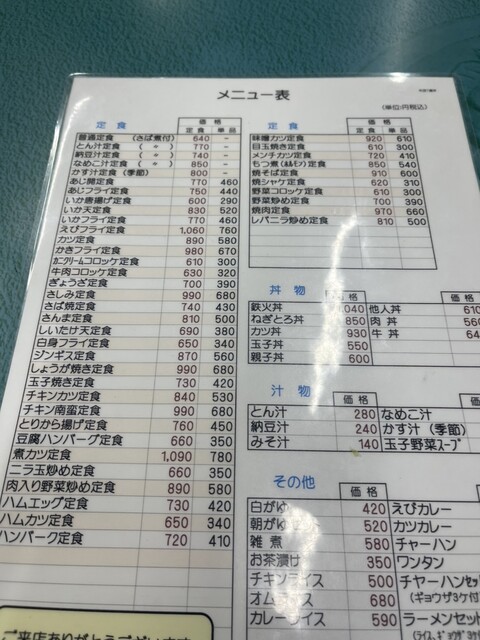 メニュー表
(単位:円税込)
定食 価格
定食 単品
普通定食 (さば煮付) 640 -
とん汁定食 ( 〃 ) 770 -
納豆汁定食 ( 〃 ) 740 -
なめこ汁定食 ( 〃 ) 850 -
かす汁定食 (季節) 800 -
あじ開定食 770 460
あじフライ定食 750 440
いか唐揚げ定食 600 290
いか天定食 830 520
いかフライ定食 770 460
えびフライ定食 1,060 760
カツ定食 890 580
かきフライ定食 980 670
カニクリームコロッケ定食 610 300
牛肉コロッケ定食 630 320
ぎょうざ定食 700 390
さしみ定食 990 680
さば焼定食 740 430
さんま定食 810 500
しいたけ天定食 690 380
白身フライ定食 650 340
ジンギス定食 870 560
しょうが焼き定食 990 680
玉子焼き定食 730 420
チキンカツ定食 840 530
チキン南蛮定食 990 680
とりから揚げ定食 760 450
豆腐ハンバーグ定食 660 350
煮カツ定食 1,090 780
ニラ玉炒め定食 660 350
肉入り野菜炒め定食 890 580
ハムエッグ定食 730 420
ハムカツ定食 650 340
ハンバーク定食 720 410
ご来店ありがとうございます
定食 価格
定食 単品
味噌カツ定食 920 610
目玉焼き定食 610 300
メンチカツ定食 720 410
もつ煮(ﾎﾙﾓﾝ)定食 850 540
焼そば定食 910 600
焼シャケ定食 620 310
野菜コロッケ定食 610 300
野菜炒め定食 700 390
焼肉定食 970 660
レバニラ炒め定食 810 500
丼物
価格 価格
鉄火丼 040 他人丼 610
ねぎとろ丼 850 肉丼 560
カツ丼 930 牛丼 64
玉子丼 550
親子丼 600
汁物
価格 価格
とん汁 280 なめこ汁
納豆汁 240 かす汁 (季節)
みそ汁 140 玉子野菜スープ
その他
価格
白がゆ 420 えびカレー
朝がゆ 520 カツカレー
雑煮 580 チャーハン
お茶漬け 350 ワンタン
チキンライス 500 チャーハンセット
(ギョウザ3ケ付)
オムライス 680
カレーライス 590 ラーメンセット